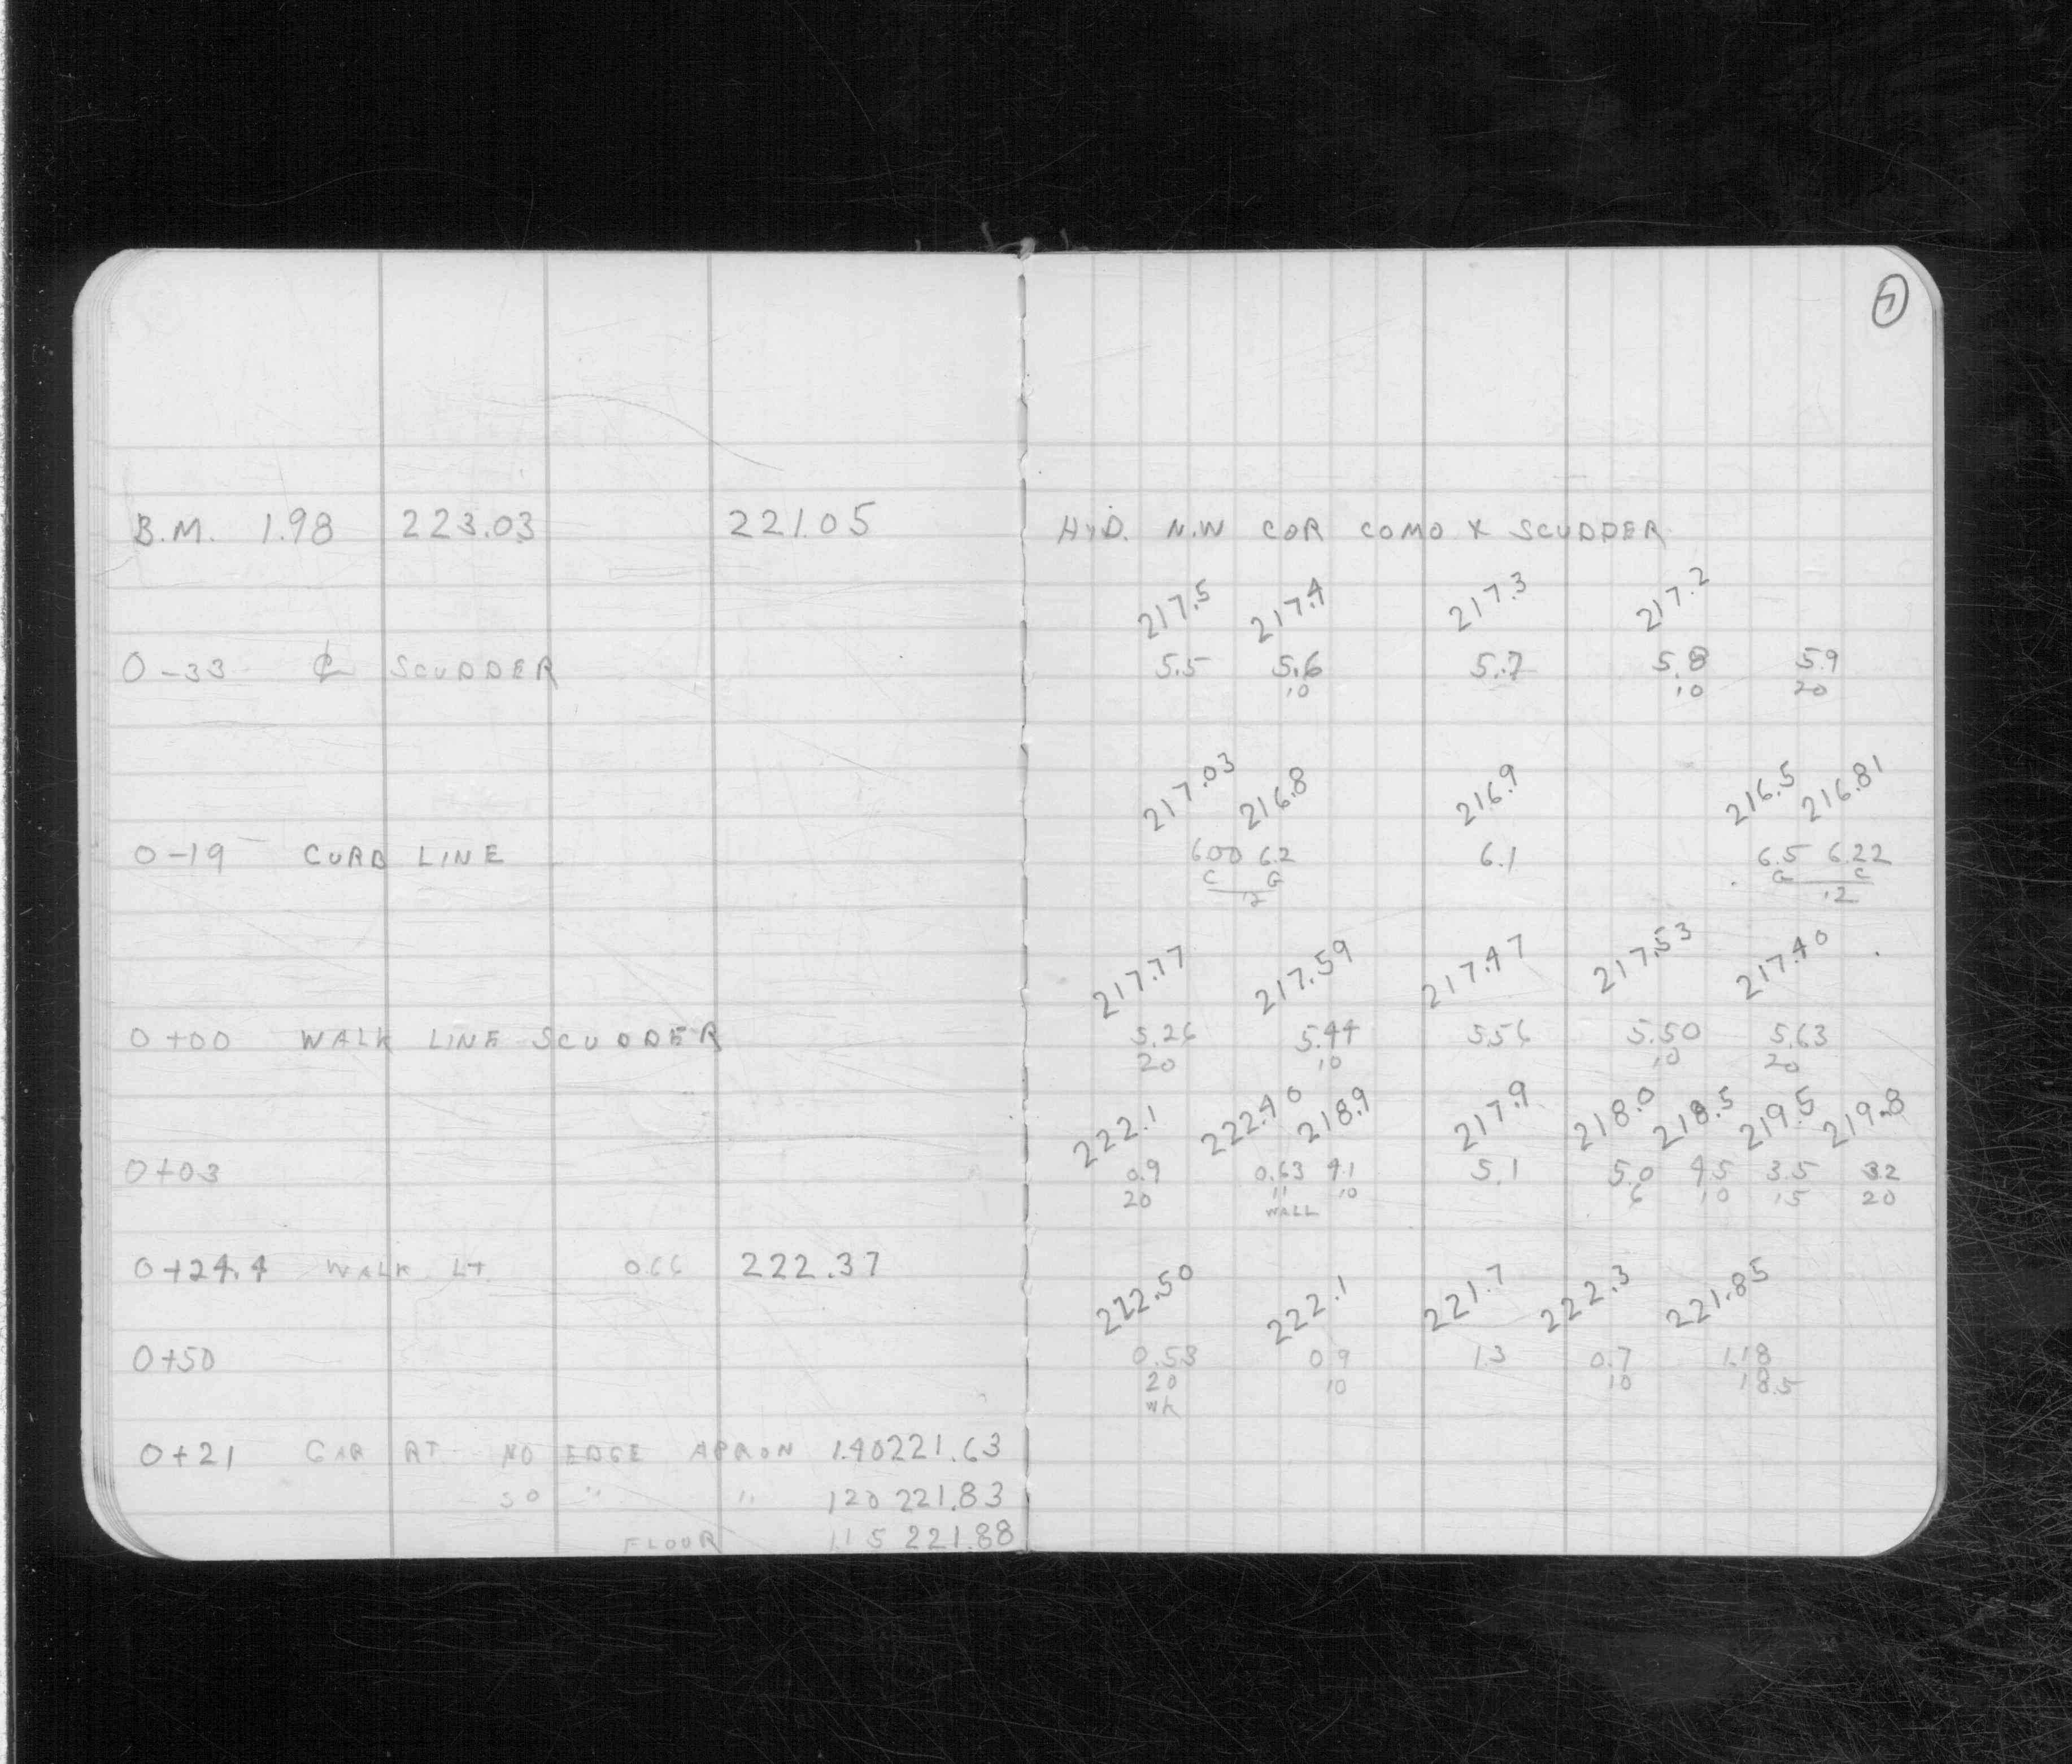 7
B.M. 1.98 223.03 221.05 HYD. N.W COR COMO X SCUDDER
217.5 217.4 217.3 217.2
0-33 ℄ SCUDDER 5.5 5.6 5.7 5.8 5.9
10 10 20
217.03 216.8 216.9 216.5 216.81
0-19 CURB LINE 6.00 6.2 6.1 6.5 6.22
C G G C
12
217.77 217.59 217.47 217.53 217.40
0+00 WALK LINE SCUDDER 5.26 5.44 5.56 5.50 5.63
20 10 10 20
222.1 222.40 218.9 217.9 218.0 218.5 219.5 219.8
0+03 0.9 0.63 4.1 5.1 5.0 4.5 3.5 3.2
20 11 10 6 10 15 20
WALL
0+24.4 WALK LT 0.66 222.37
222.50 222.1 221.7 222.3 221.85
0+50 0.53 0.9 1.3 0.7 1.18
20 10 10 18.5
WK
0+21 GAR RT NO EDGE APRON 1.40 221.63
SO " " 1.20 221.83
FLOOR 1.15 221.88